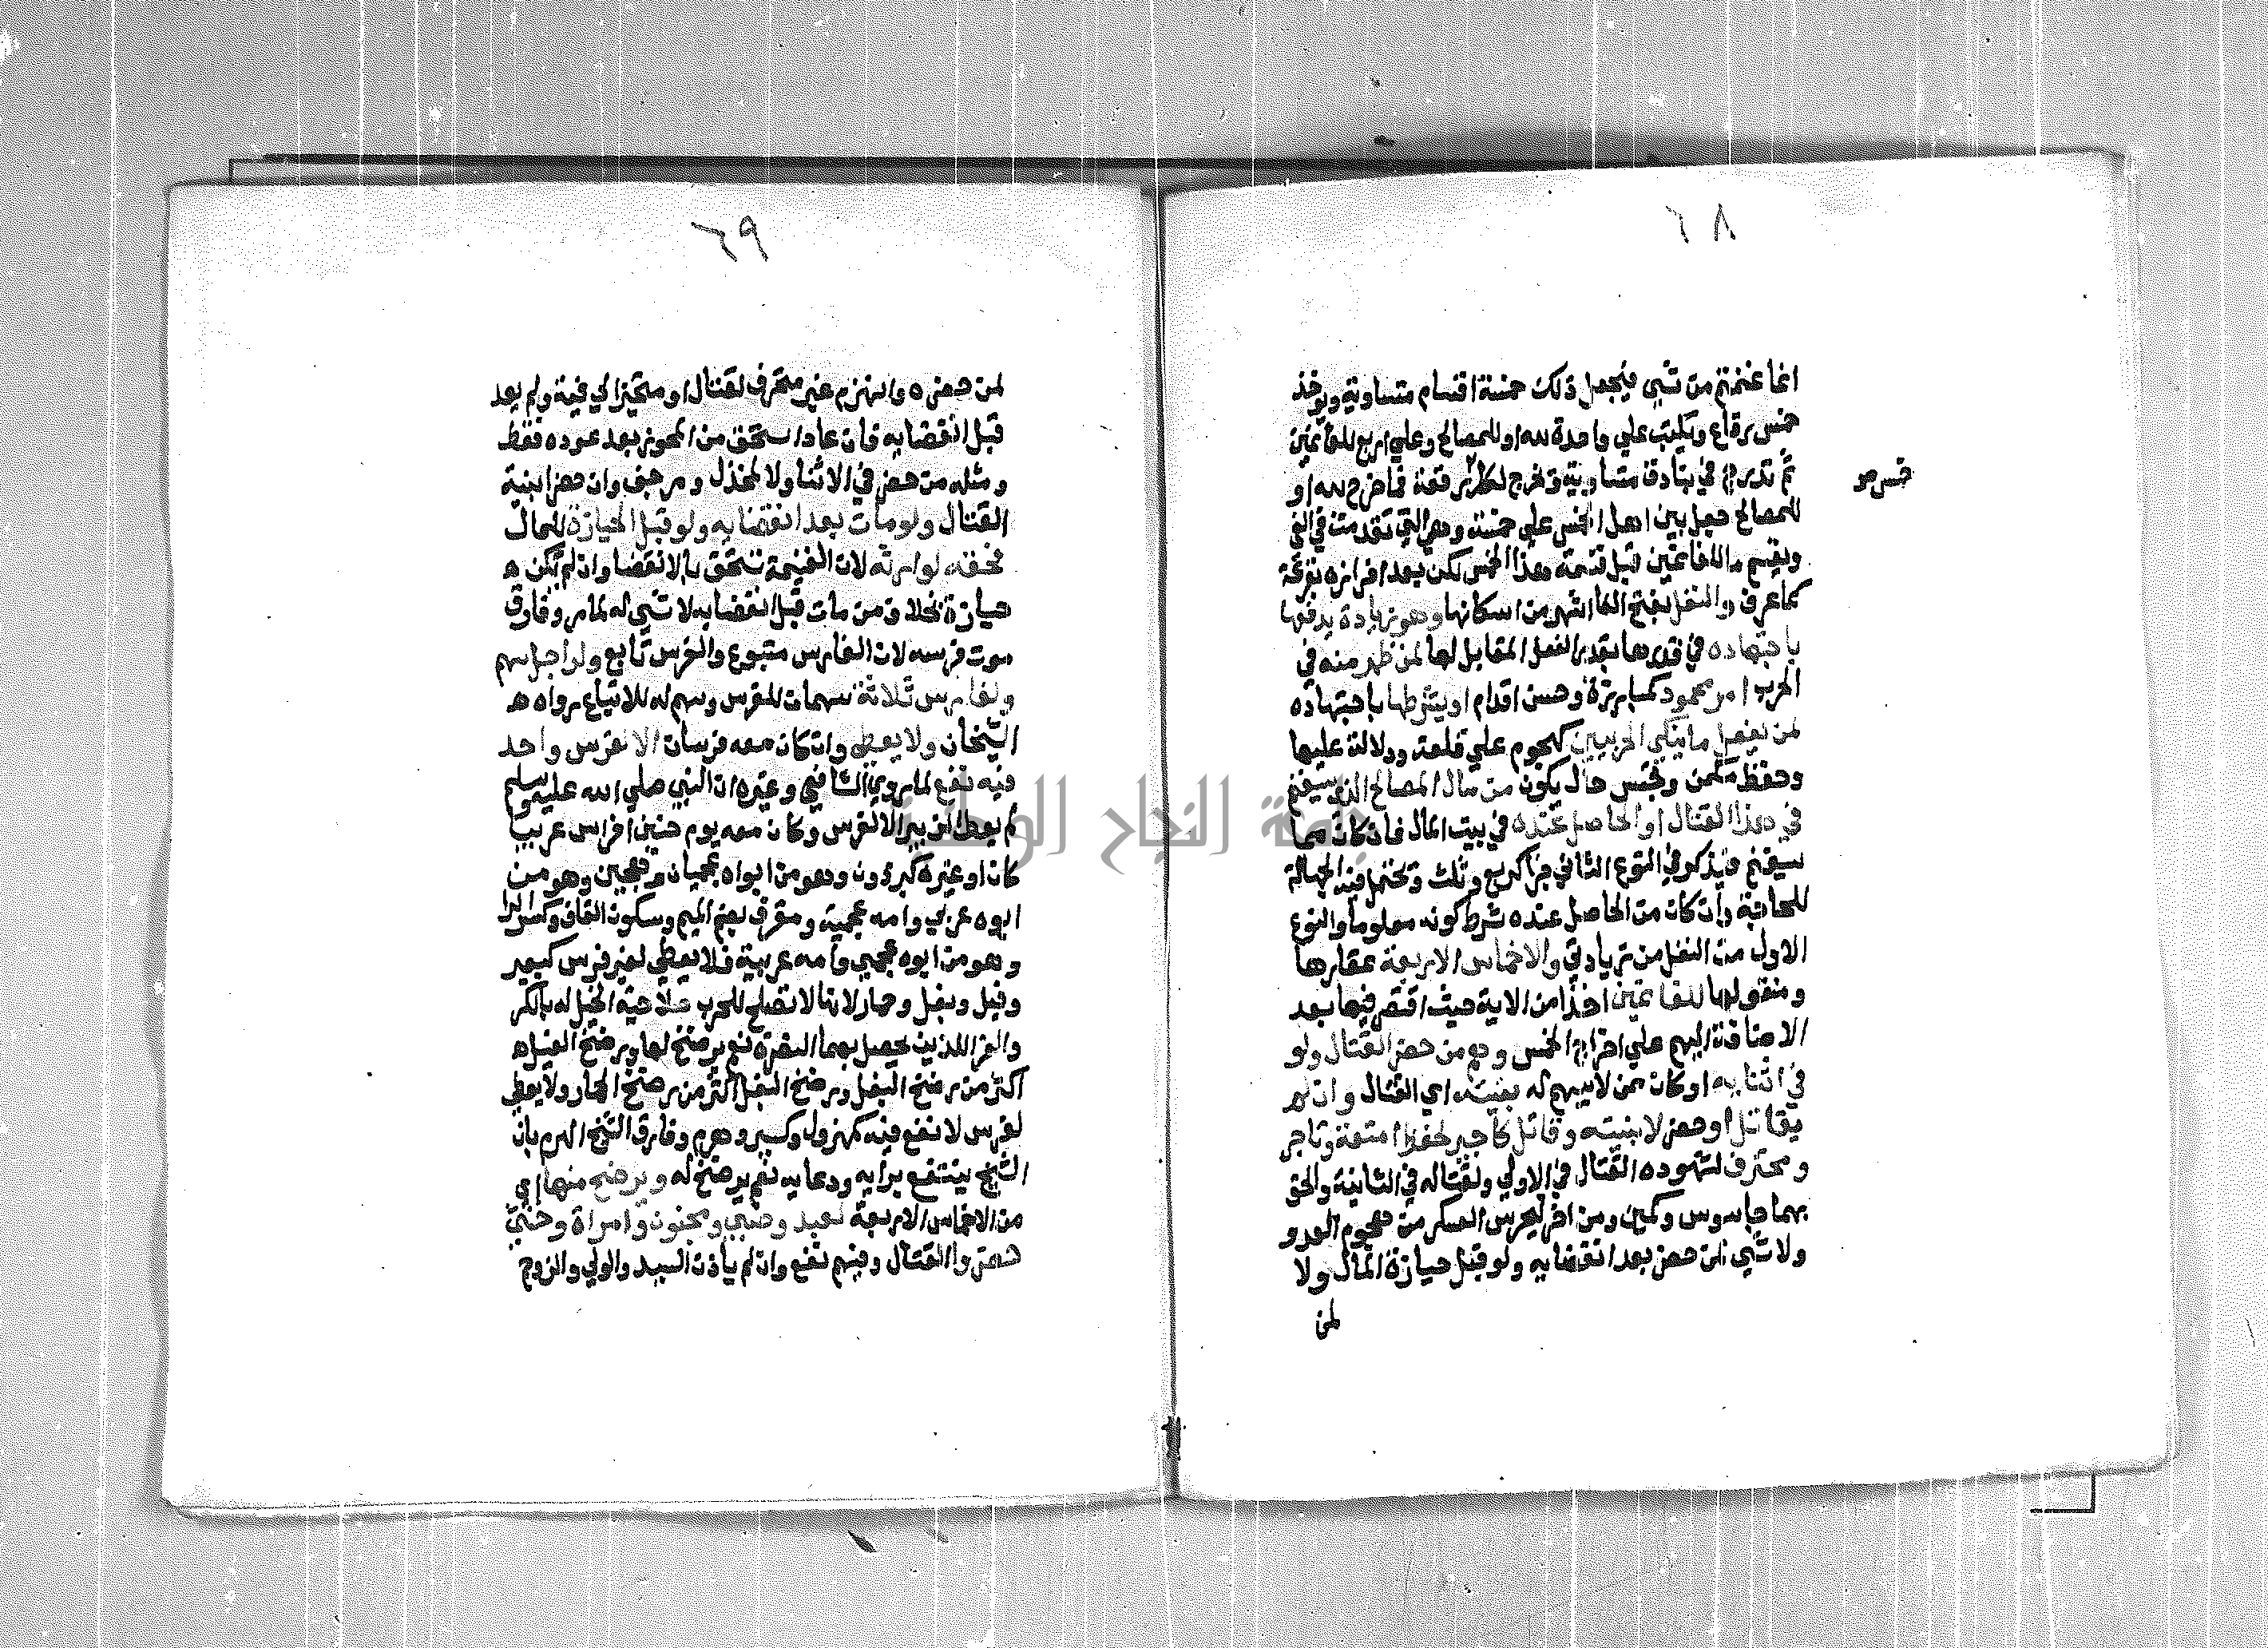 ٦٨
انما غنمتم من شي فيجعل ذلك خمسة اقسام متساوية ويوخذ
خمس رقاع ويكتب علي واحدة لله او للمصالح وعلي اربع للغانمين
ثم تدرج في بنادق متساوية ويخرج لكل رقعة فما خرج لله او
خمس صح
للمصالح جعل بين اهل الخمس علي خمسة وهي التي تقدمت في الفي
ويقسم ما للغانمين قبل قسمة هذا الخمس لكن بعد افرازه بقرعة
كما عرف والنفل بفتح الفا اشهر من اسكانها وهو زيادة يدفعها
باجتهاده في قدرها بقدر الفعل المقابل لها لمن ظهر منه في
الحرب امر محمود كمبارزة وحسن اقدام او يشرطها باجتهاده
لمن يفعل ما ينكي الحربيين كهجوم علي قلعة ودلالة عليها
وحفظ مكمن وتجسس حال يكون من مال المصالح الذي سيغنم
في هذا القتال او الحاصل عنده في بيت المال فان كان مما
سيغنم فيذكر في النوع الثاني جزا كربع وثلث وتحتمل فيه الجهالة
للحاجة وان كان من الحاصل عنده شرط كونه معلوما والنوع
الاول من النفل من زيادتي والاخماس الاربعة عقارها
ومنقولها للغانمين اخذا من الاية حيث اقتصر فيها بعد
الاضافة اليهم علي اخراج الخمس وهو من حضر القتال ولو
في اثنايه او كان ممن لا يسهم له بنيته اي القتال وان لم
يقاتل او حضر لا بنيته وقاتل كاجير لحفظ امتعة وتاجر
ومحترف لشهوده القتال في الاولي ولقتاله في الثانية والحق
بهما جاسوس وكمين ومن اخر ليحرس العسكر من هجوم العدو
ولا شي لمن حضر بعد انقضايه ولو قبل حيازة المال ولا
لمن
٦٩
لمن حضره وانهزم غير متحرف لقتال او متحيز الي فية ولم يعد
قبل انقضايه فان عاد استحق من المحوز بعد عوده فقط
ومثله من حضر في الاثنا ولا لمخذل ومرجف وان حضر ابنية
القتال ولو مات بعد انقضايه ولو قبل الحيازة للمال
فحقه لوارثه لان الغنيمة تستحق بالانقضا وان لم تكن ه
حيازة بخلاف من مات قبل انقضايه لا شي له لما مر وفارق
موت فرسه لان الفارس متبوع والفرس تابع ولراجل سهم
ولفارس ثلاثة سهمان للفرس وسهم له للاتباع رواه ه
الشيخان ولا يعطي وان كان معه فرسان الا لفرس واحد
فيه نفع لما روي الشافعي وغيره ان النبي صلي الله عليه وسلم
لم يعط الزبير الا لفرس وكان معه يوم حنين افراس عربيا
كان او غيره كبرذون وهو من ابواه عجميان وهجين وهو من
ابوه عربي وامه عجمية ومقرف بضم الميم وسكون القاف وكسر الرا
وهو من ابوه عجمي وامه عربية فلا يعطي لغير فرس كبعير
وفيل وبغل وحمار لانها لا تصلح للحرب صلاحية الخيل له بالكر
والفر اللذين يحصل بهما النصرة نعم يرضخ لها ورضخ الفيل ه
اكثر من رضخ البغل ورضخ البغل اكثر من رضخ الحمار ولا يعطي
لفرس لا نفع فيه كمهزول وكسير وهرم وفارق الشيخ الهرم بان
الشيخ ينتفع برايه ودعايه نعم يرضخ له ويرضخ منها اي
من الاخماس الاربعة لعبد وصبي ومجنون وامراة وخنثي
حضروا القتال وفيهم نفع وان لم ياذن السيد والولي والزوج